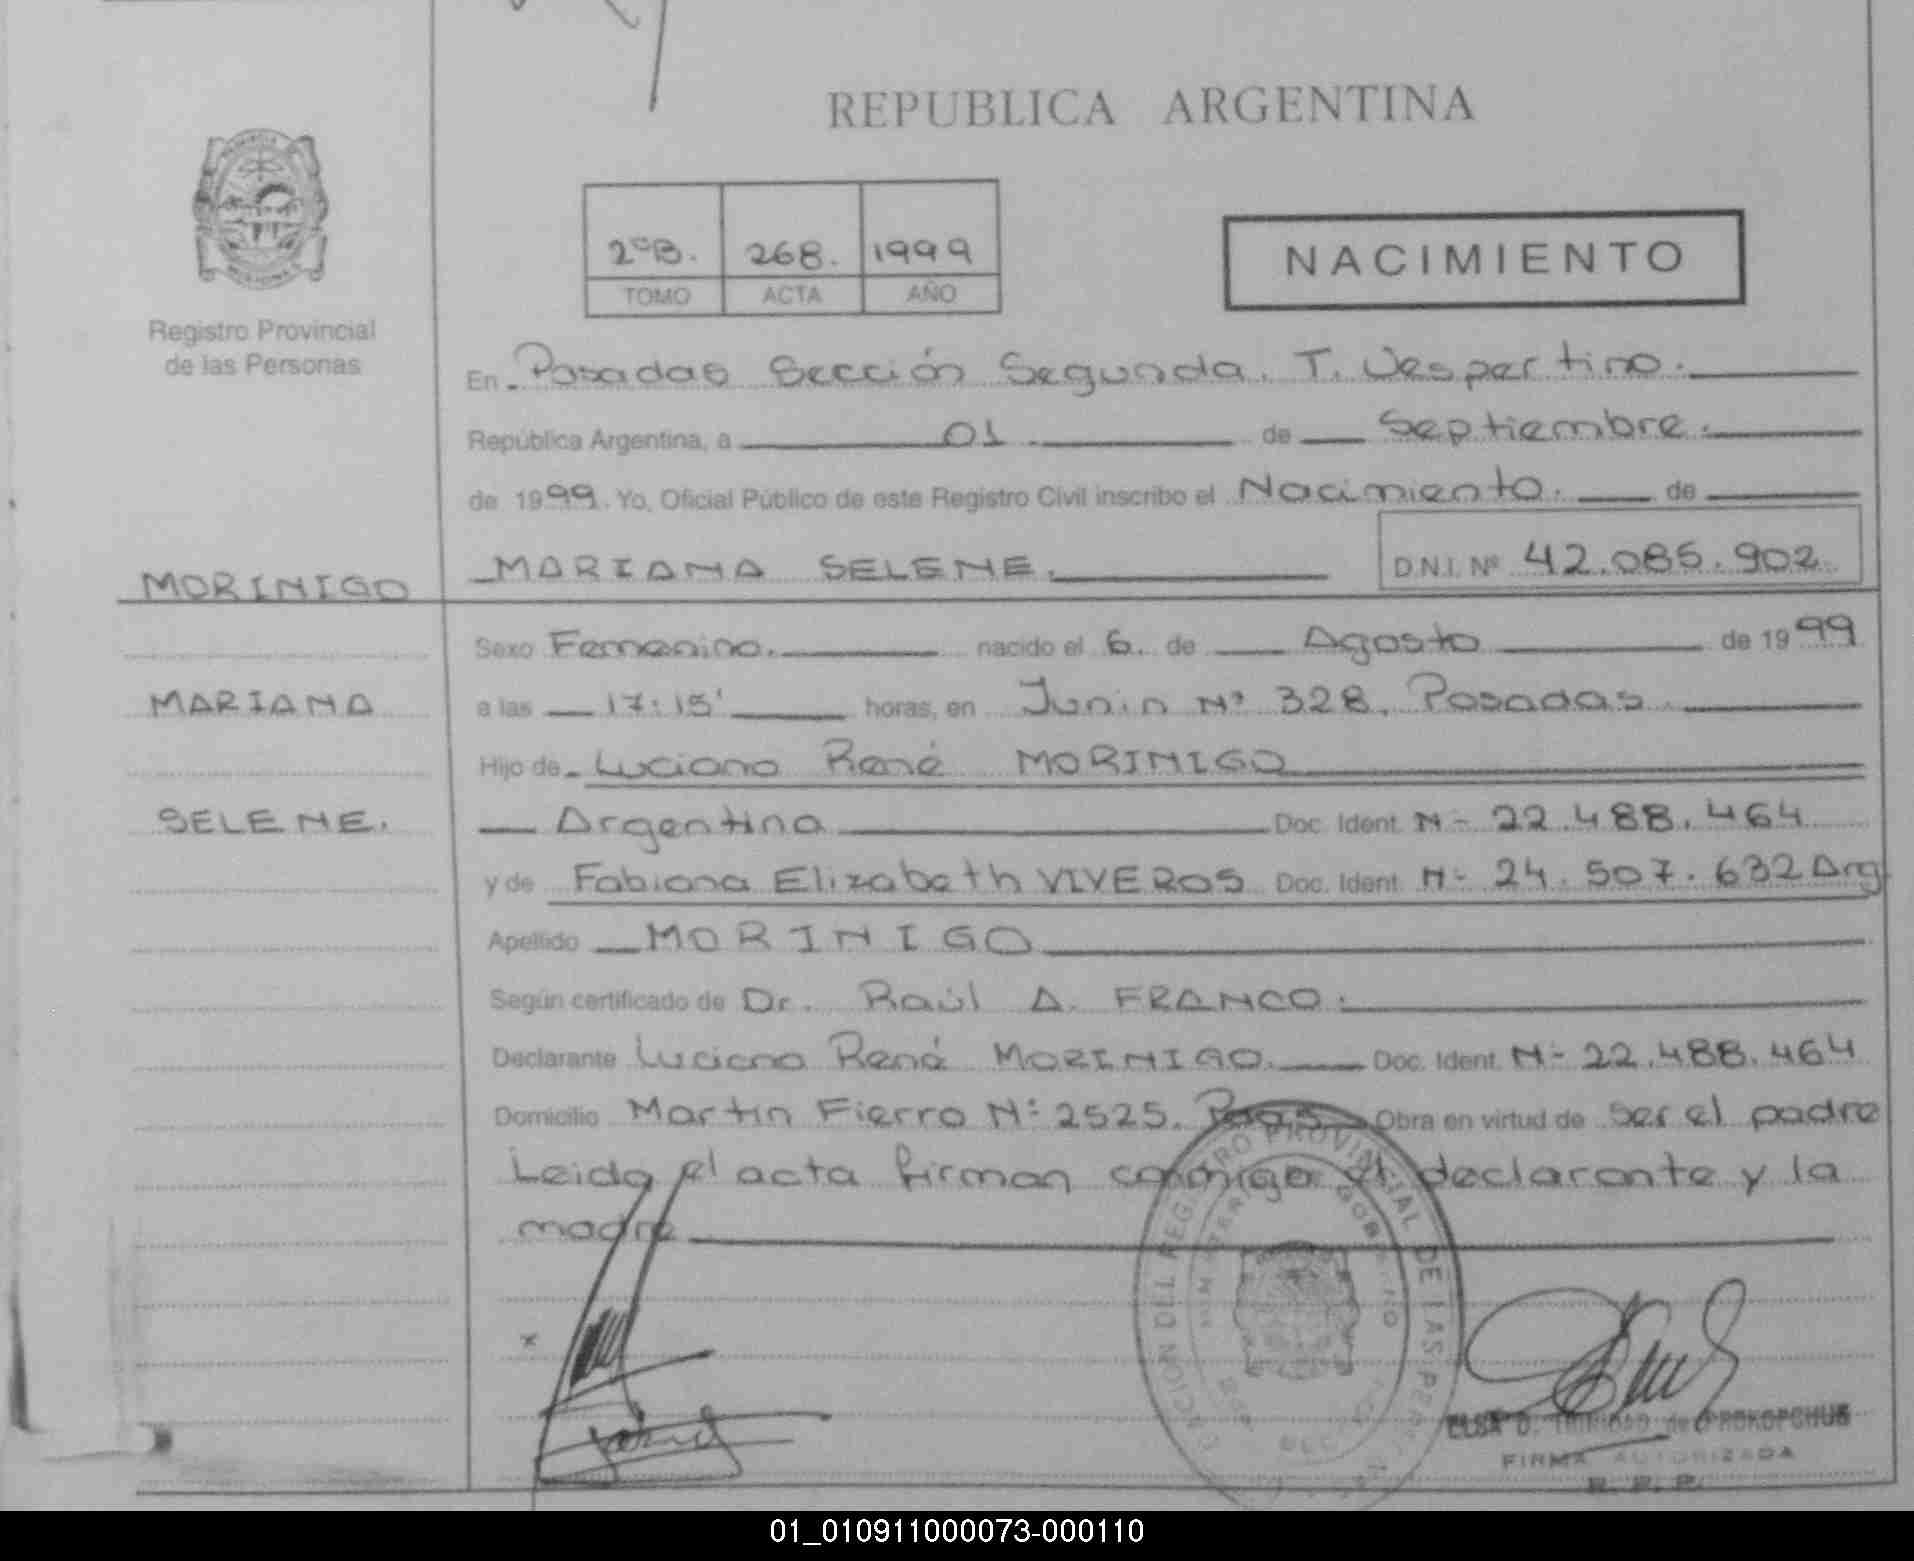 REPUBLICA ARGENTINA
2ºB. 268. 1999
TOMO ACTA AÑO
NACIMIENTO
Registro Provincial
de las Personas
En Posadas Sección Segunda. T. Vespertino.
República Argentina, a 01 de Septiembre.
de 1999. Yo, Oficial Público de este Registro Civil inscribo el Nacimiento. de
MARIANA SELENE. D.N.I. Nº 42.085.902.
MORINIGO
MARIANA
SELENE.
Sexo Femenino. nacido el 6. de Agosto de 1999
a las 17:15' horas, en Junin Nº 328. Posadas
Hijo de Luciano René MORINIGO
Argentina Doc. Ident. N- 22.488.464
y de Fabiana Elizabeth VIVEROS Doc. Ident. N- 24.507.632 Arg
Apellido MORINIGO
Según certificado de Dr. Raúl A. FRANCO.
Declarante Luciano René MORINIGO. Doc. Ident. N- 22.488.464
Domicilio Martin Fierro Nº 2525. Pdas. Obra en virtud de ser el padre
Leida el acta firman conmigo el declarante y la
madre
REGISTRO PROVINCIAL DE LAS
ELSA D. TRINIDAD de PROKOPCHUK
FIRMA AUTORIZADA
R. P. P.
01_010911000073-000110